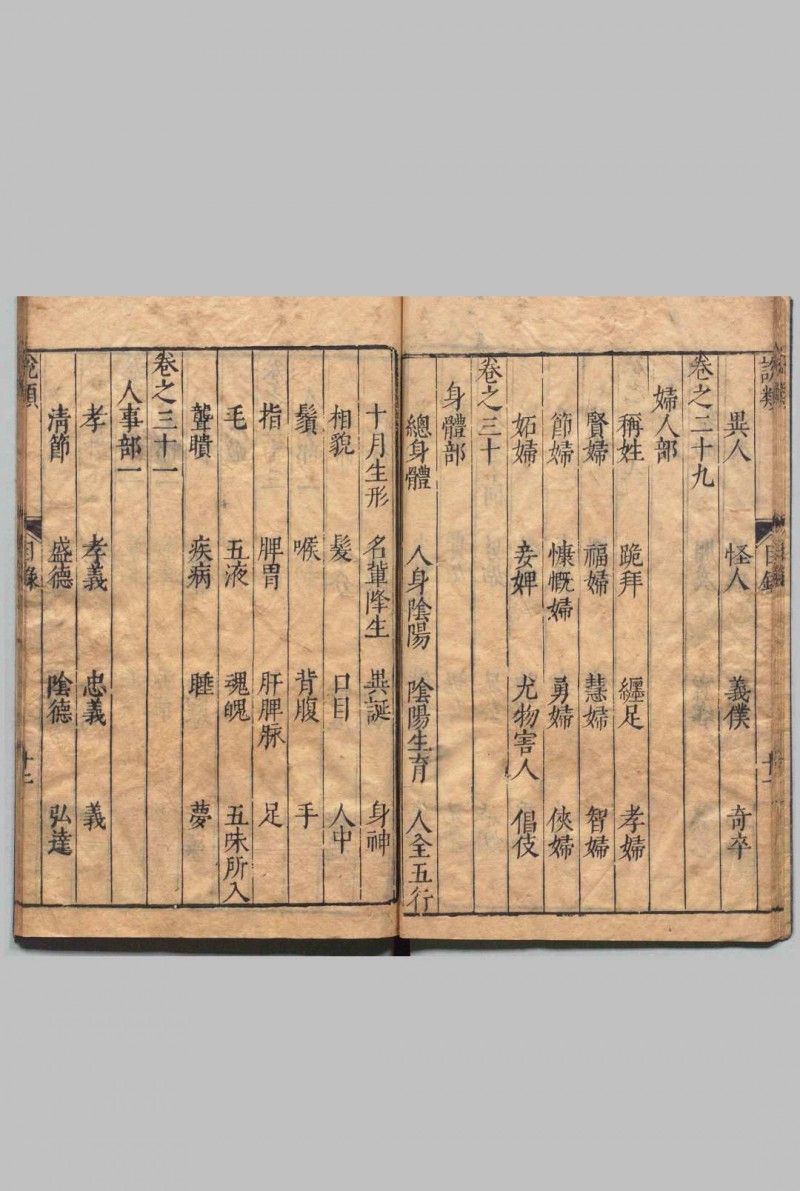 異人 怪人 義僕 奇卒
卷之二十九
婦人部
稱姓 跪拜 纏足 孝婦
賢婦 福婦 慧婦 智婦
節婦 慷慨婦 勇婦 俠婦
妬婦 妾婢 尤物害人 倡伎
卷之三十
身體部
總身體 人身陰陽 陰陽生育 人全五行
十月生形 名輩降生 異誕 身神
相貌 髮 口目 人中
鬚 喉 背腹 手
指 脾胃 肝脾脈 足
毛 五液 魂魄 五味所入
聾瞶 疾病 睡 夢
卷之三十一
人事部一
孝 孝義 忠義 義
清節 盛德 陰德 弘達
說類 目錄 十二